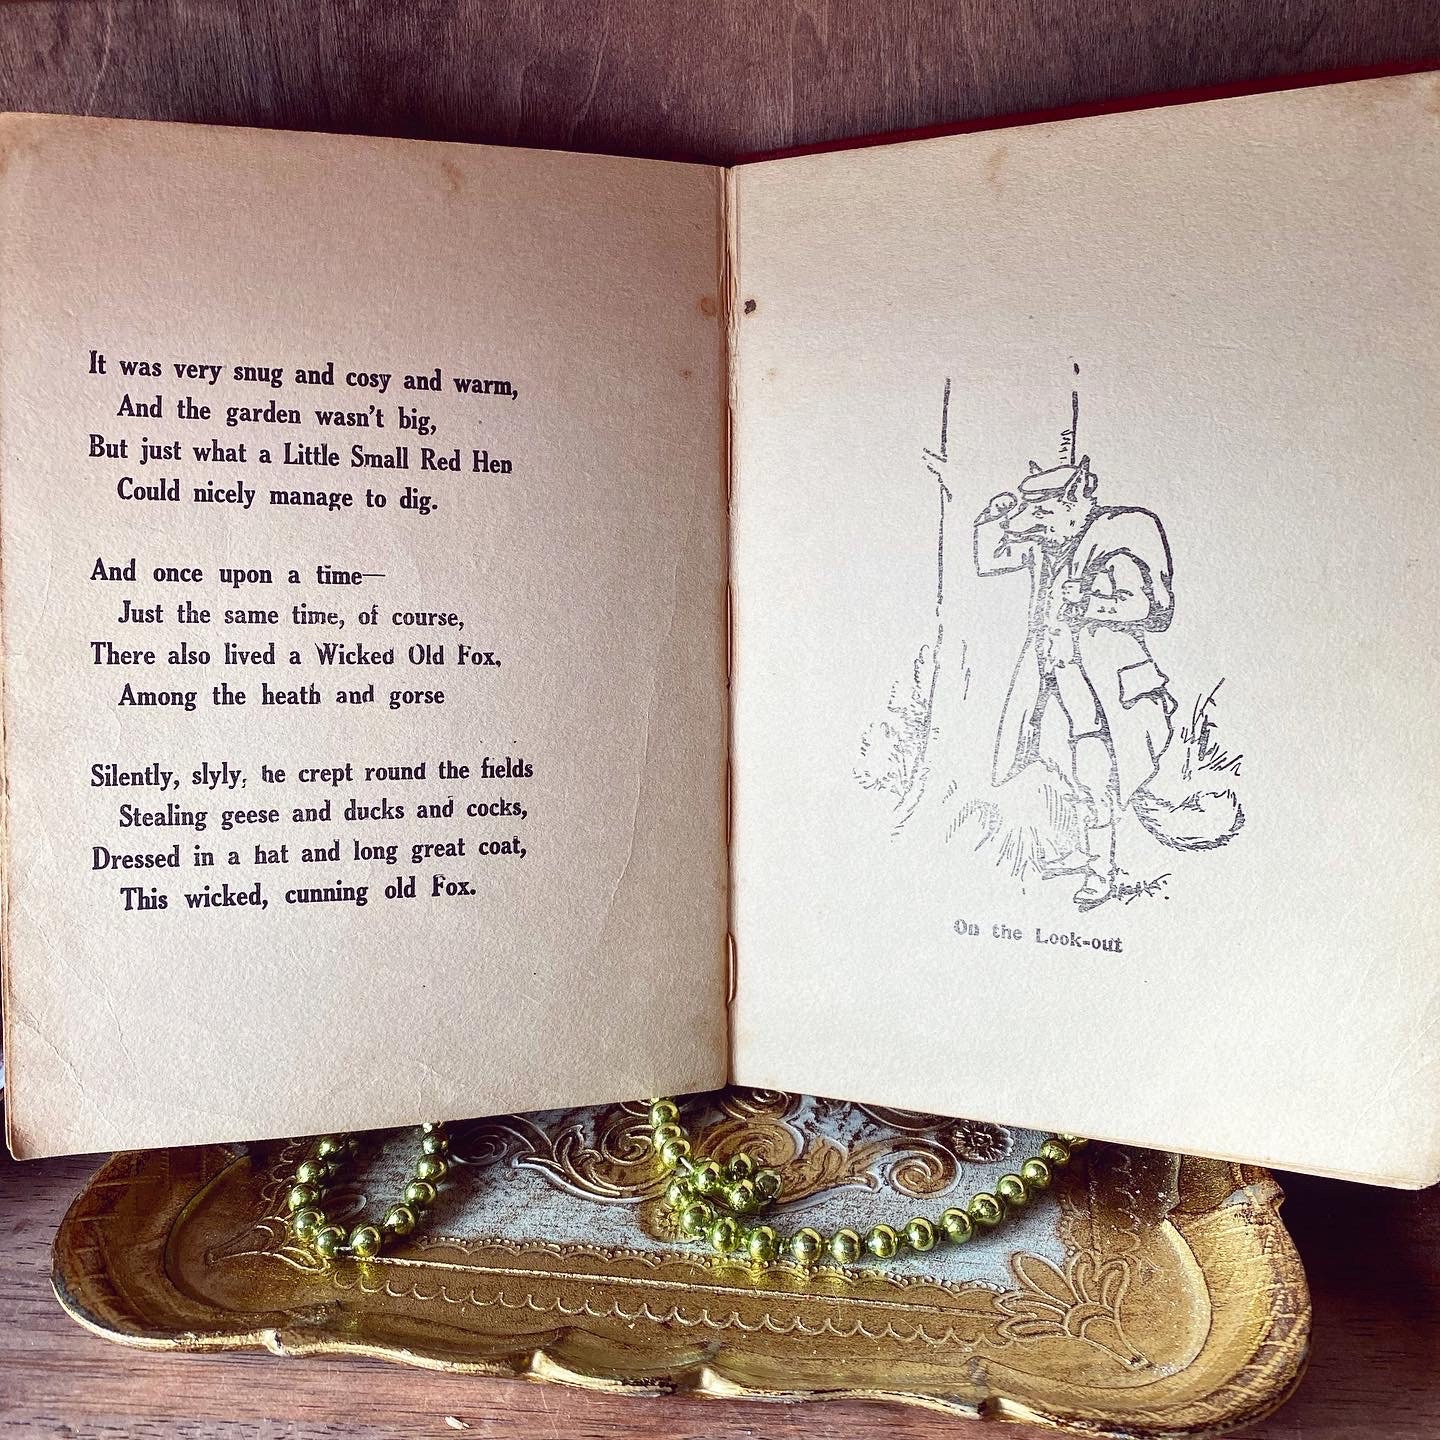 It was very snug and cosy and warm,
And the garden wasn't big,
But just what a Little Small Red Hen
Could nicely manage to dig.
And once upon a time—
Just the same time, of course,
There also lived a Wicked Old Fox,
Among the heath and gorse
Silently, slyly, he crept round the fields
Stealing geese and ducks and cocks,
Dressed in a hat and long great coat,
This wicked, cunning old Fox.
On the Look-out